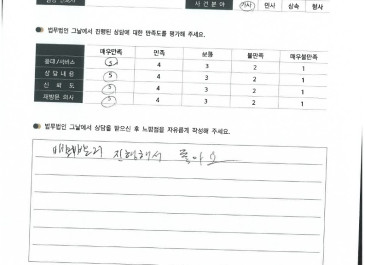 사 건 분 야 가사 민사 상속 형사
법무법인 그날에서 진행된 상담에 대한 만족도를 평가해 주세요.
매우만족 만족 보통 불만족 매우불만족
응대/서비스 5 4 3 2 1
상 담 내 용 5 4 3 2 1
신 뢰 도 5 4 3 2 1
재방문 의사 5 4 3 2 1
법무법인 그날에서 상담을 받으신 후 느낌점을 자유롭게 작성해 주세요.
진행해서 좋아요